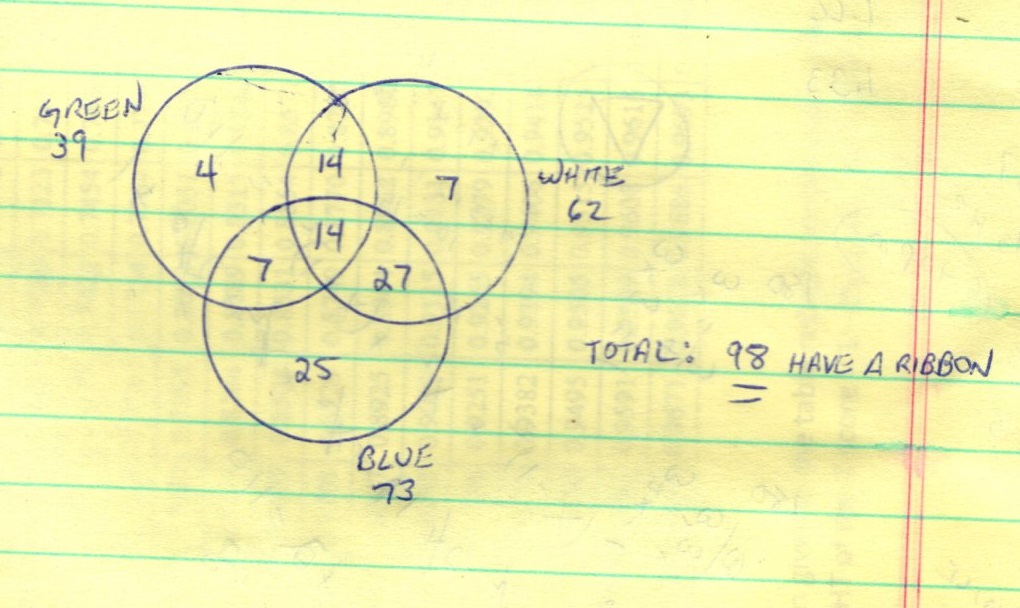 GREEN
39
4
14
7
WHITE
62
14
7
27
25
TOTAL: 98 HAVE A RIBBON
BLUE
73